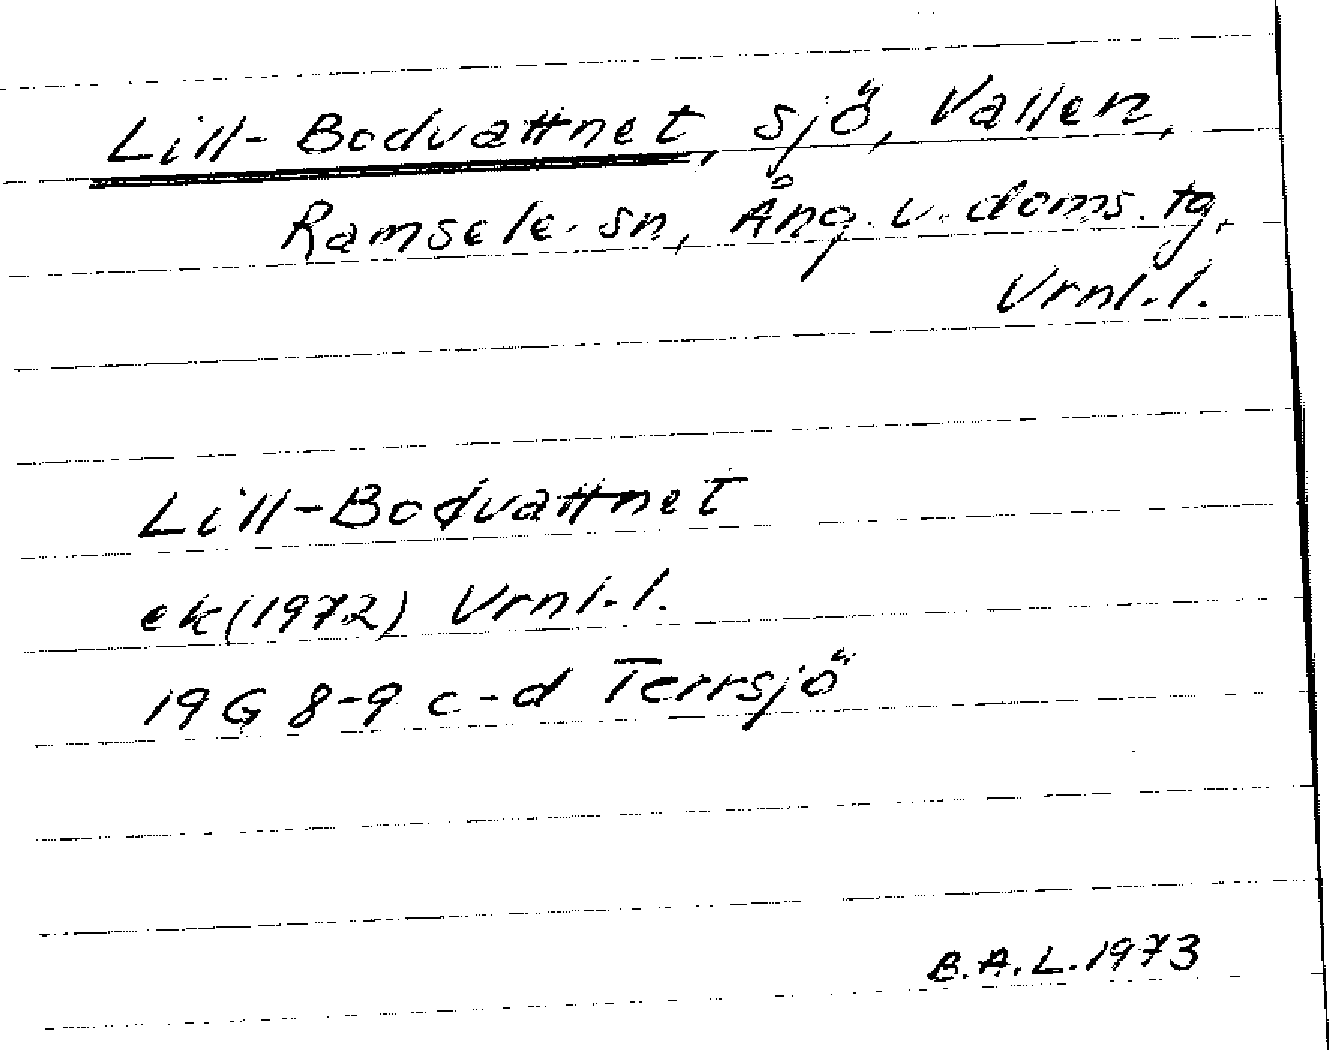 Lill-Bodvattnet, sjö, Vallen,
Ramsele sn, Ång. v. doms. tg,
Vrnl.l.
Lill-Bodvattnet
ek(1972) Vrnl.l.
19G 8-9 c-d Terrsjö
B.A.L. 1973